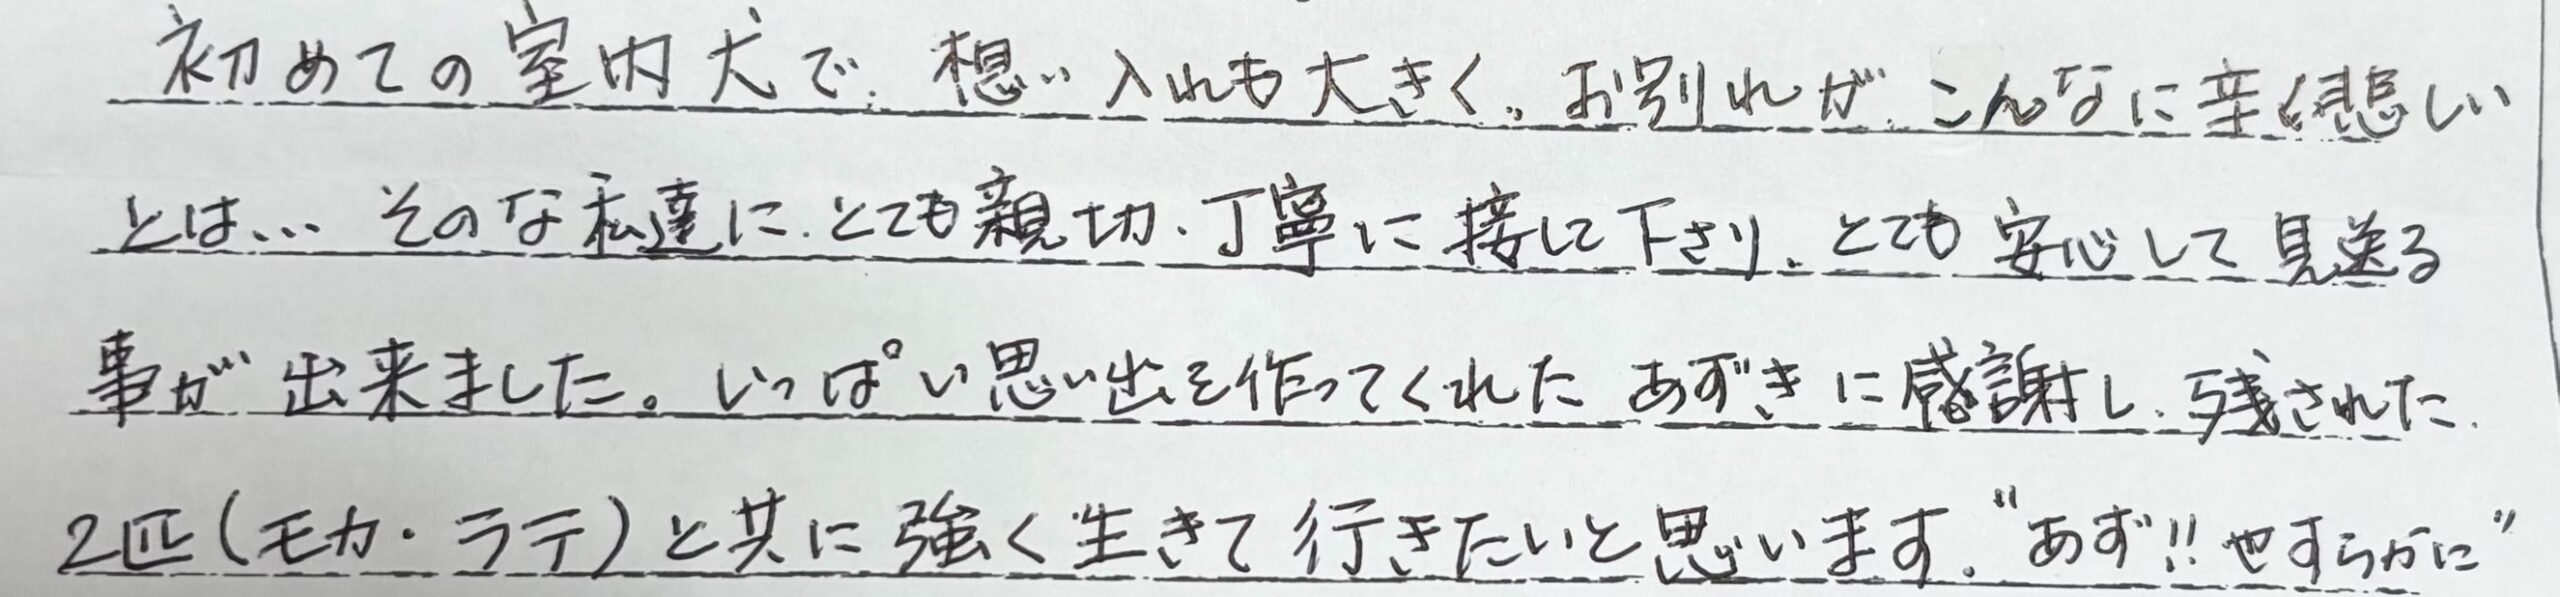 初めての室内犬で、想い入れも大きく、お別れが、こんなに辛く悲しい
とは… そのな私達に、とても親切、丁寧に接して下さり、とても安心して見送る
事が出来ました。いっぱい思い出を作ってくれたあずきに感謝し、残された、
2匹(モカ・ラテ)と共に強く生きて行きたいと思います。"あず!! やすらかに"